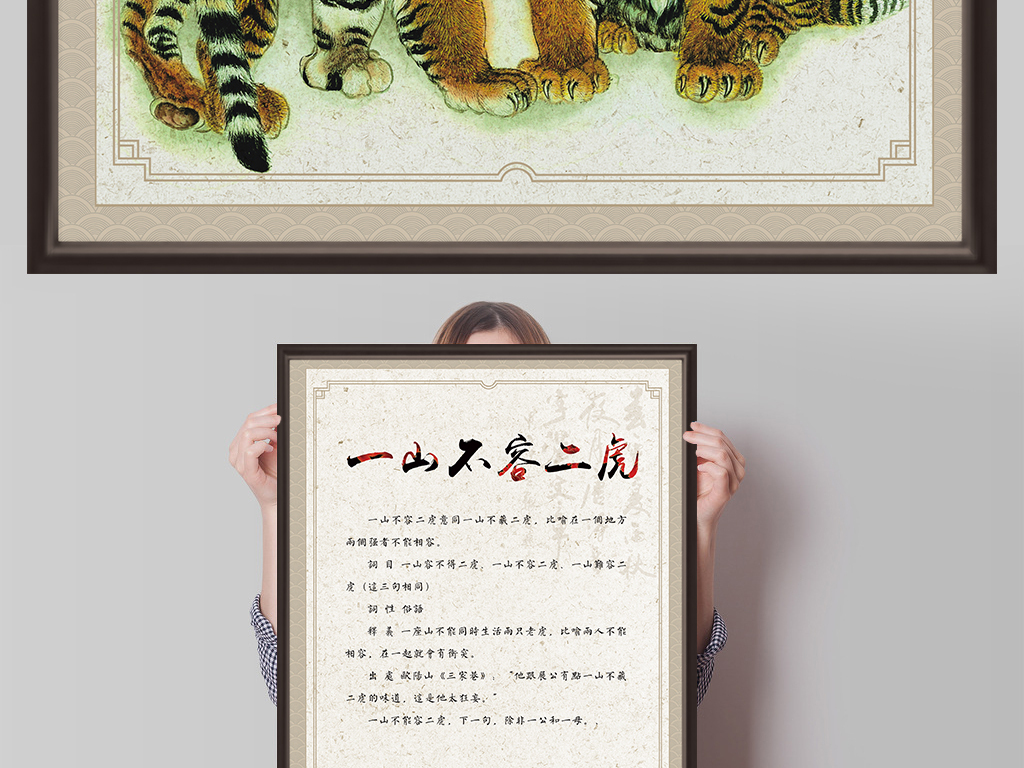 一山不容二虎
一山不容二虎意同一山不藏二虎，比喻在一個地方
兩個强者不能相容。
詞 目 一山容不得二虎、一山不容二虎、一山難容二
虎（這三句相同）
詞 性 俗語
釋 義 一座山不能同時生活兩只老虎，比喻兩人不能
相容，在一起就會有衝突。
出 處 歐陽山《三家巷》："他跟展公有點一山不藏
二虎的味道，這是他太狂妄。"
一山不能容二虎，下一句，除非一公和一母。